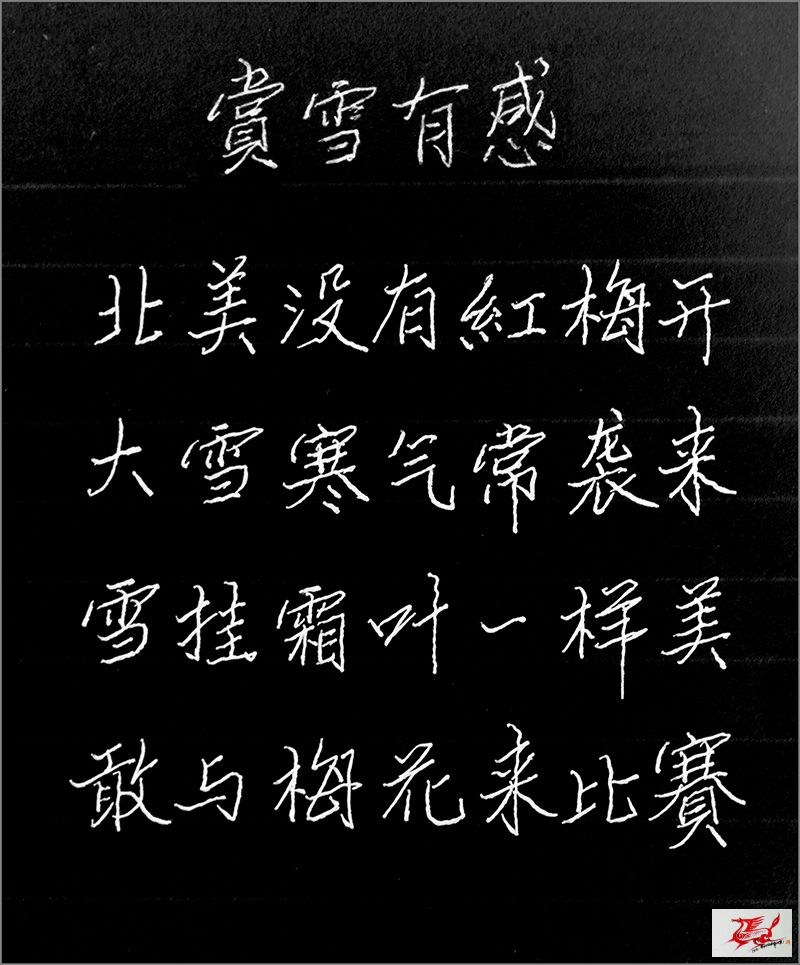 賞雪有感
北美没有紅梅开
大雪寒气常袭来
雪挂霜叶一样美
敢与梅花来比賽